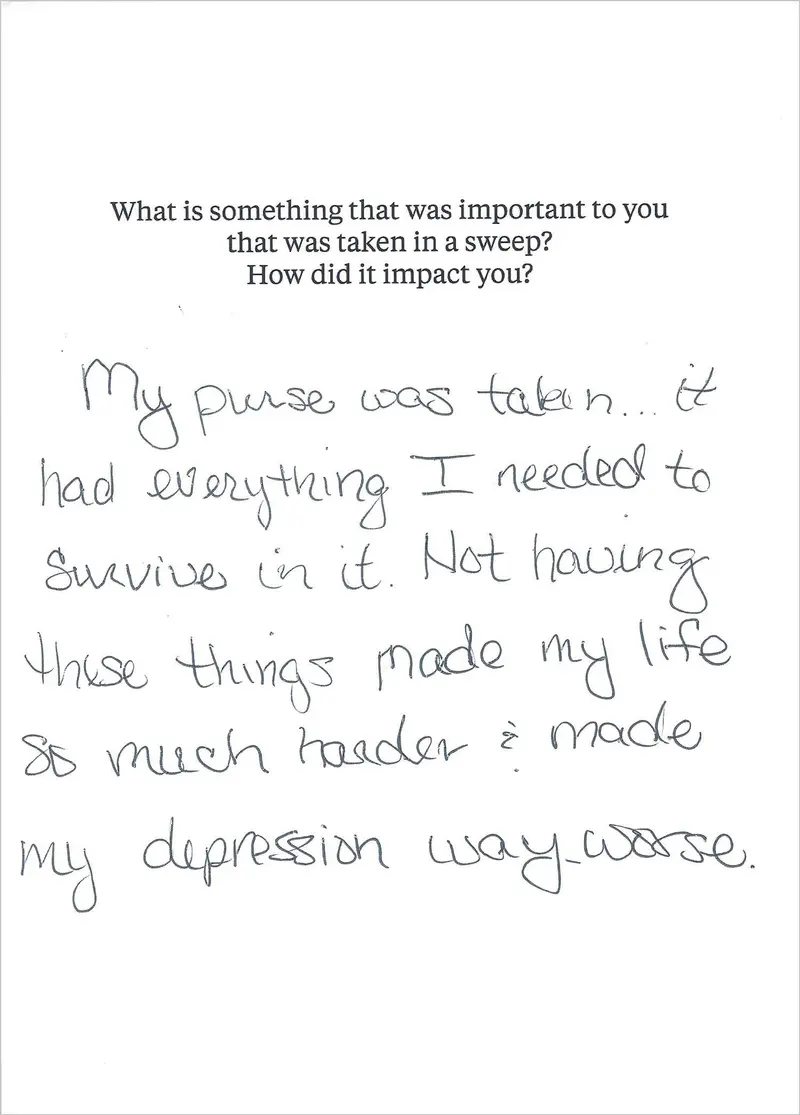 What is something that was important to you
that was taken in a sweep?
How did it impact you?
My purse was taken... it
had everything I needed to
survive in it. Not having
these things made my life
so much harder & made
my depression way worse.